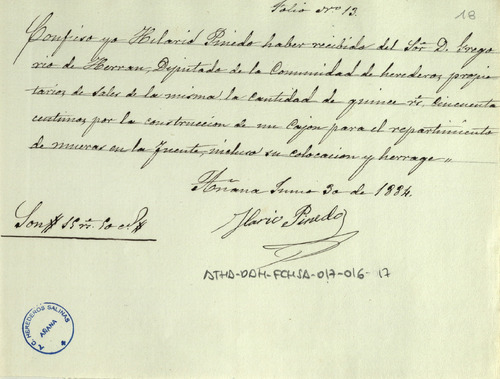 Folio nro 13.
18
Confieso yo Hilario Pinedo haber recibido del Sor. D. Grego
rio de Herran, Deputado de la Comunidad de herederos propie
tarios de Sales de la misma la cantidad de quince rs. cincuenta
centimos por la construccion de un cajon para el repartimiento
de mueras en la Fuente, incluso su colocacion y herrage
Añana Junio 30 de 1884.
Son 15 rs. 50 cs.
Ilario Pinedo
ATHA-DAH-FCHSA-017-016-17
A.C. HEREDEROS SALINAS
AÑANA